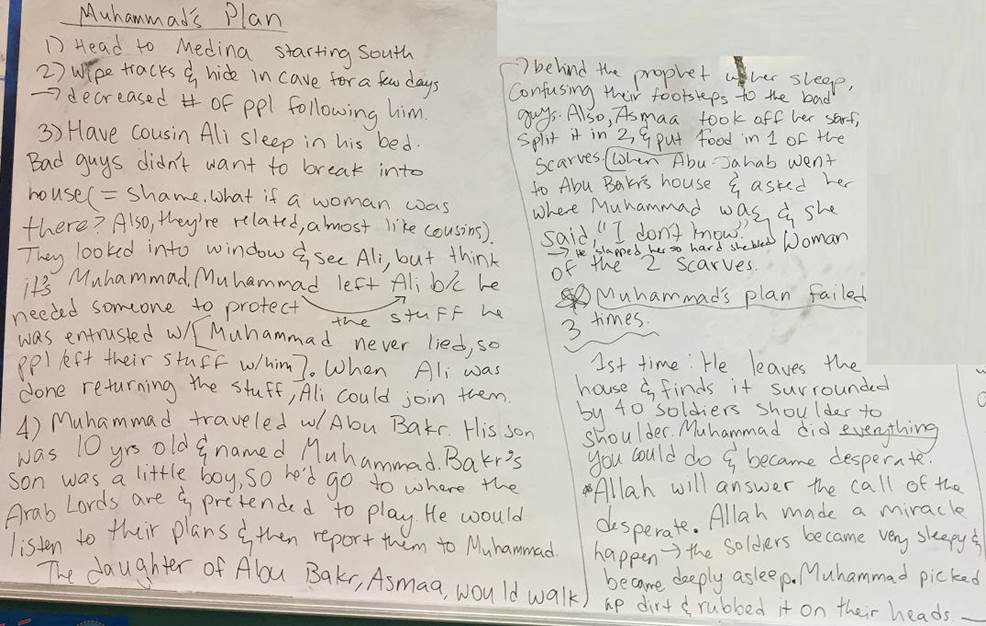 Muhammad's Plan
1) Head to Medina starting South
2) Wipe tracks & hide in cave for a few days
→ decreased # of ppl following him.
3) Have cousin Ali sleep in his bed.
Bad guys didn't want to break into
house (= shame. What if a woman was
there? Also, they're related, almost like cousins).
They looked into window & see Ali, but think
it's Muhammad. Muhammad left Ali b/c he
needed someone to protect the stuff he
was entrusted w/ [Muhammad never lied, so
ppl left their stuff w/him]. When Ali was
done returning the stuff, Ali could join them.
4) Muhammad traveled w/ Abu Bakr. His son
was 10 yrs old & named Muhammad. Bakr's
son was a little boy, so he'd go to where the
Arab Lords are & pretended to play. He would
listen to their plans & then report them to Muhammad.
The daughter of Abu Bakr, Asmaa, would walk
→ behind the prophet w/ her sheep,
confusing their footsteps to the bad
guys. Also, Asmaa took off her scarf,
split it in 2, & put food in 1 of the
scarves. When Abu Jahab went
to Abu Bakr's house & asked her
where Muhammad was, & she
said, "I don't know".
→ He slapped her so hard she bled
Woman
of the 2 scarves.
Muhammad's plan failed
3 times.
1st time: He leaves the
house & finds it surrounded
by 40 soldiers shoulder to
shoulder. Muhammad did everything
you could do & became desperate.
*Allah will answer the call of the
desperate. Allah made a miracle
happen → the soldiers became very sleepy &
became deeply asleep. Muhammad picked
up dirt & rubbed it on their heads